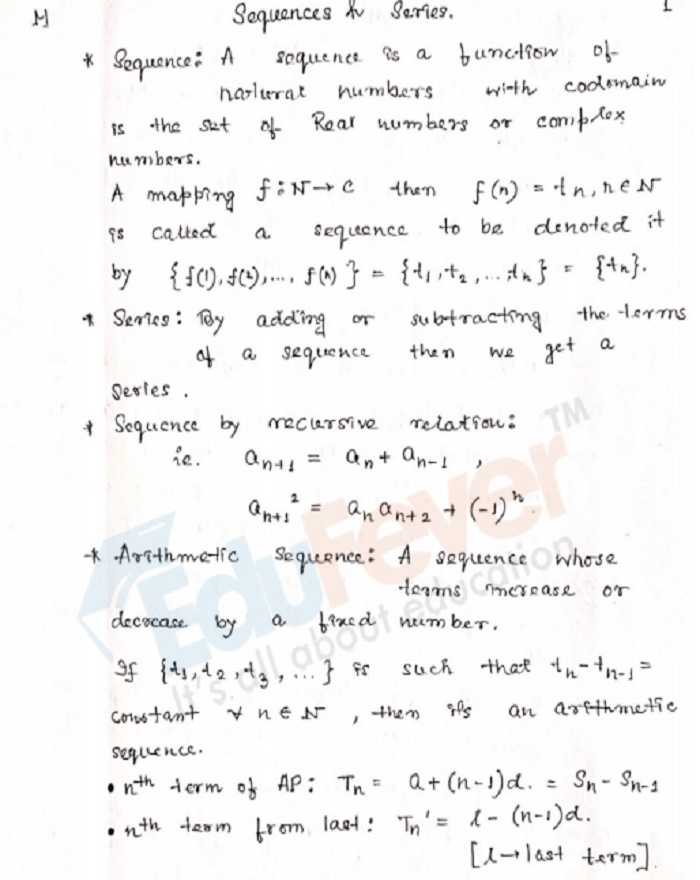 M Sequences & Series. 1
* Sequence: A sequence is a function of
natural numbers with codomain
is the set of Real numbers or complex
numbers.
A mapping f:N→C then f(n) = tn, n∈N
is called a sequence to be denoted it
by {f(1), f(2), ..., f(n)} = {t₁, t₂, ... tn} = {tn}.
* Series: By adding or subtracting the terms
of a sequence then we get a
series.
* Sequence by recursive relation:
ie. aₙ₊₁ = aₙ + aₙ₋₁ ,
aₙ₊₁² = aₙ aₙ₊₂ + (-1)ⁿ.
* Arithmetic Sequence: A sequence whose
terms increase or
decrease by a fixed number.
If {t₁, t₂, t₃, ...} is such that tₙ - tₙ₋₁ =
constant ∀ n ∈ N , then it's an arithmetic
sequence.
• nth term of AP: Tₙ = a + (n-1)d. = Sₙ - Sₙ₋₁
• nth term from last: Tₙ' = l - (n-1)d.
[l → last term]
EduFever TM
It's all about education